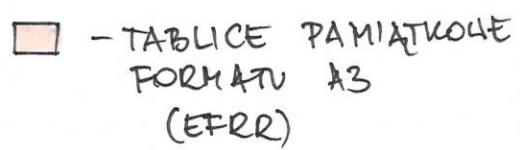 - TABLICE PAMIĄTKOWE
FORMATU A3
(EFRR)